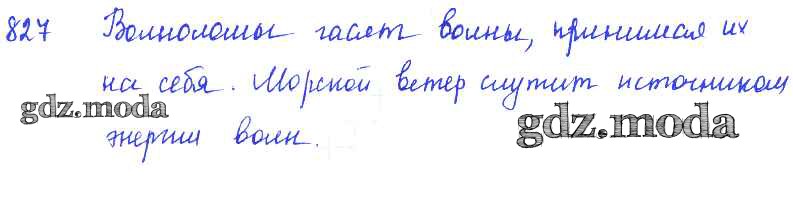 827 Волноломы гасят волны, принимая их
на себя. Морской ветер служит источником
gdz.moda
энергии волн.
gdz.moda